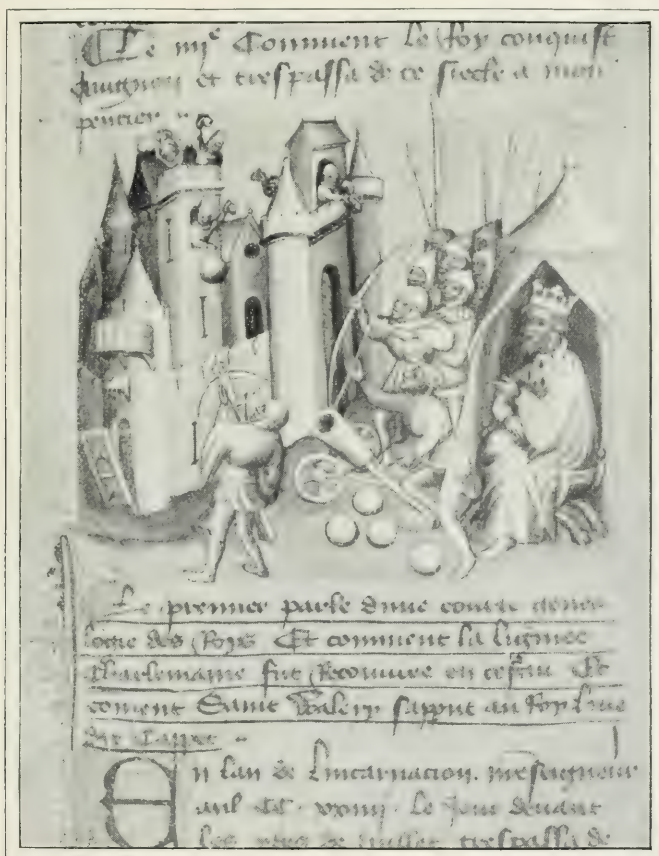 Le iiije Comment le Roy conquist
et trespassa de ce siecle a mon
pencier
Le premier parle dune
des Roys Et comment la lignee
Charlemaine fut Recouvree en cestui Et
coment Saint Walery sapput au Roy hue
En lan de lincarnacion
mil CC xxiiij le Jour devant
les de Juillet trespassa de